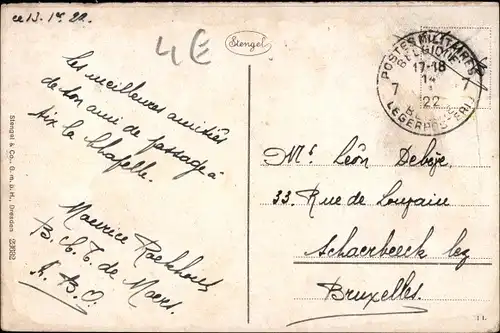 ce 13. 1er 22.
4€
Stengel
Les meilleures amitiés
de ton ami de passage à
Aix la Chapelle.
Maurice
B. de Moers.
A. B. O.
Stengel & Co., G. m. b. H., Dresden
POSTES MILITAIRES
BELGIQUE
17-18
14
7 7
22
LEGERPOSTERIJ
Mr. Léon Debeje,
33. Rue de Louvain
Schaerbeeck lez
Bruxelles.